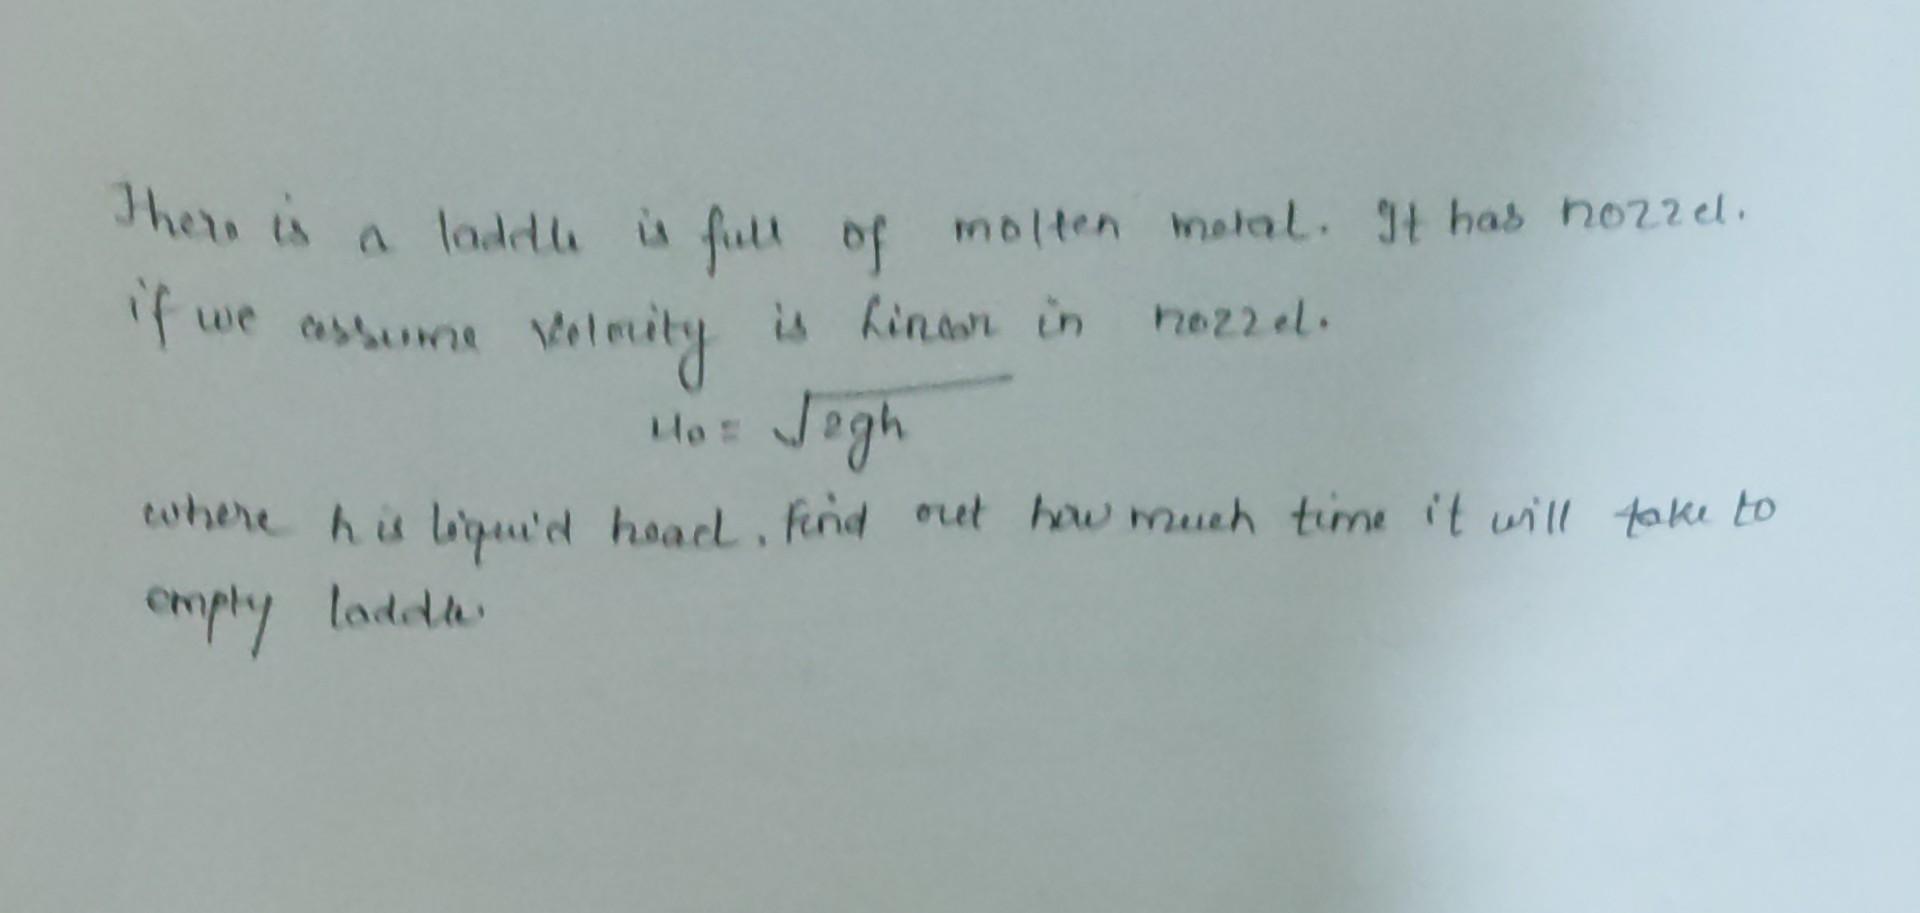 There is a laddle is full of molten metal. It has nozzel.
if we assume velocity is linear in nozzel.
u₀ = √2gh
where h is liquid head. Find out how much time it will take to
empty laddle.